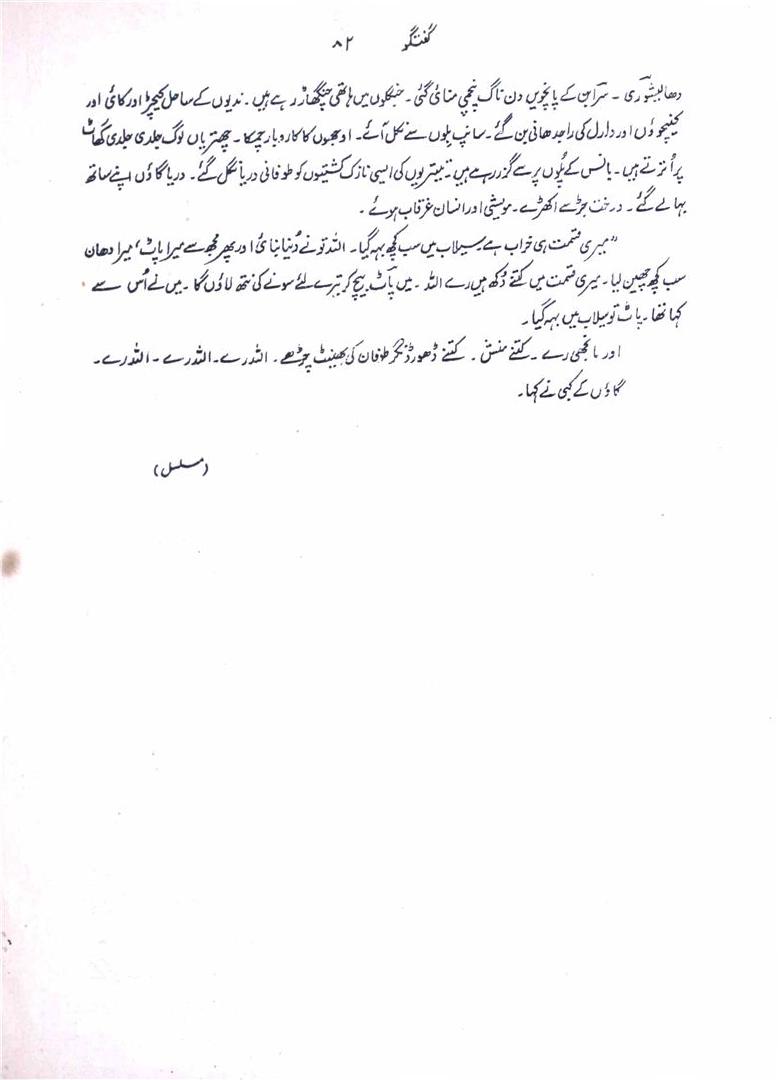 گفتگو ۸۲
دھالیشوری ۔ سراون کے پانچویں دن ناگ پنچمی منائی گئی ۔ جنگلوں میں ہاتھی چنگھاڑ رہے ہیں ۔ ندیوں کے ساحل کیچڑ اور کائی اور
کینچوؤں اور دلدل کی راجدھانی بن گئے ۔ سانپ بلوں سے نکل آئے ۔ اوجھوں کا کاروبار چمکا ۔ چھتریاں لوگ جلدی جلدی گھاٹ
پر اُترتے ہیں ۔ بانس کے پُلوں پر سے گزر رہے ہیں ۔ تیتریوں کی ایسی نازک کشتیوں کو طوفانی دریا نگل گئے ۔ دریا گاؤں اپنے ساتھ
بہا لے گئے ۔ درخت جڑ سے اکھڑے ۔ مویشی اور انسان غرقاب ہوئے ۔
”میری قسمت ہی خراب ہے سیلاب میں سب کچھ بہہ گیا ۔ اللہ تو نے دُنیا بنائی اور پھر مجھ سے میرا پاٹ، میرا دھان
سب کچھ چھین لیا ۔ میری قسمت میں کتنے دُکھ ہیں رے اللہ ۔ میں پاٹ بیچ کر تیرے لئے سونے کی نتھ لاؤں گا ۔ میں نے اُس سے
کہا تھا ۔ پاٹ تو سیلاب میں بہہ گیا ۔
اور مانجھی رے ۔ کتنے منش ۔ کتنے ڈھور ڈنگر طوفان کی بھینٹ چڑھے ۔ اللہ رے ۔ اللہ رے ۔ اللہ رے ۔
گاؤں کے کبی نے کہا ۔
(مسلسل)